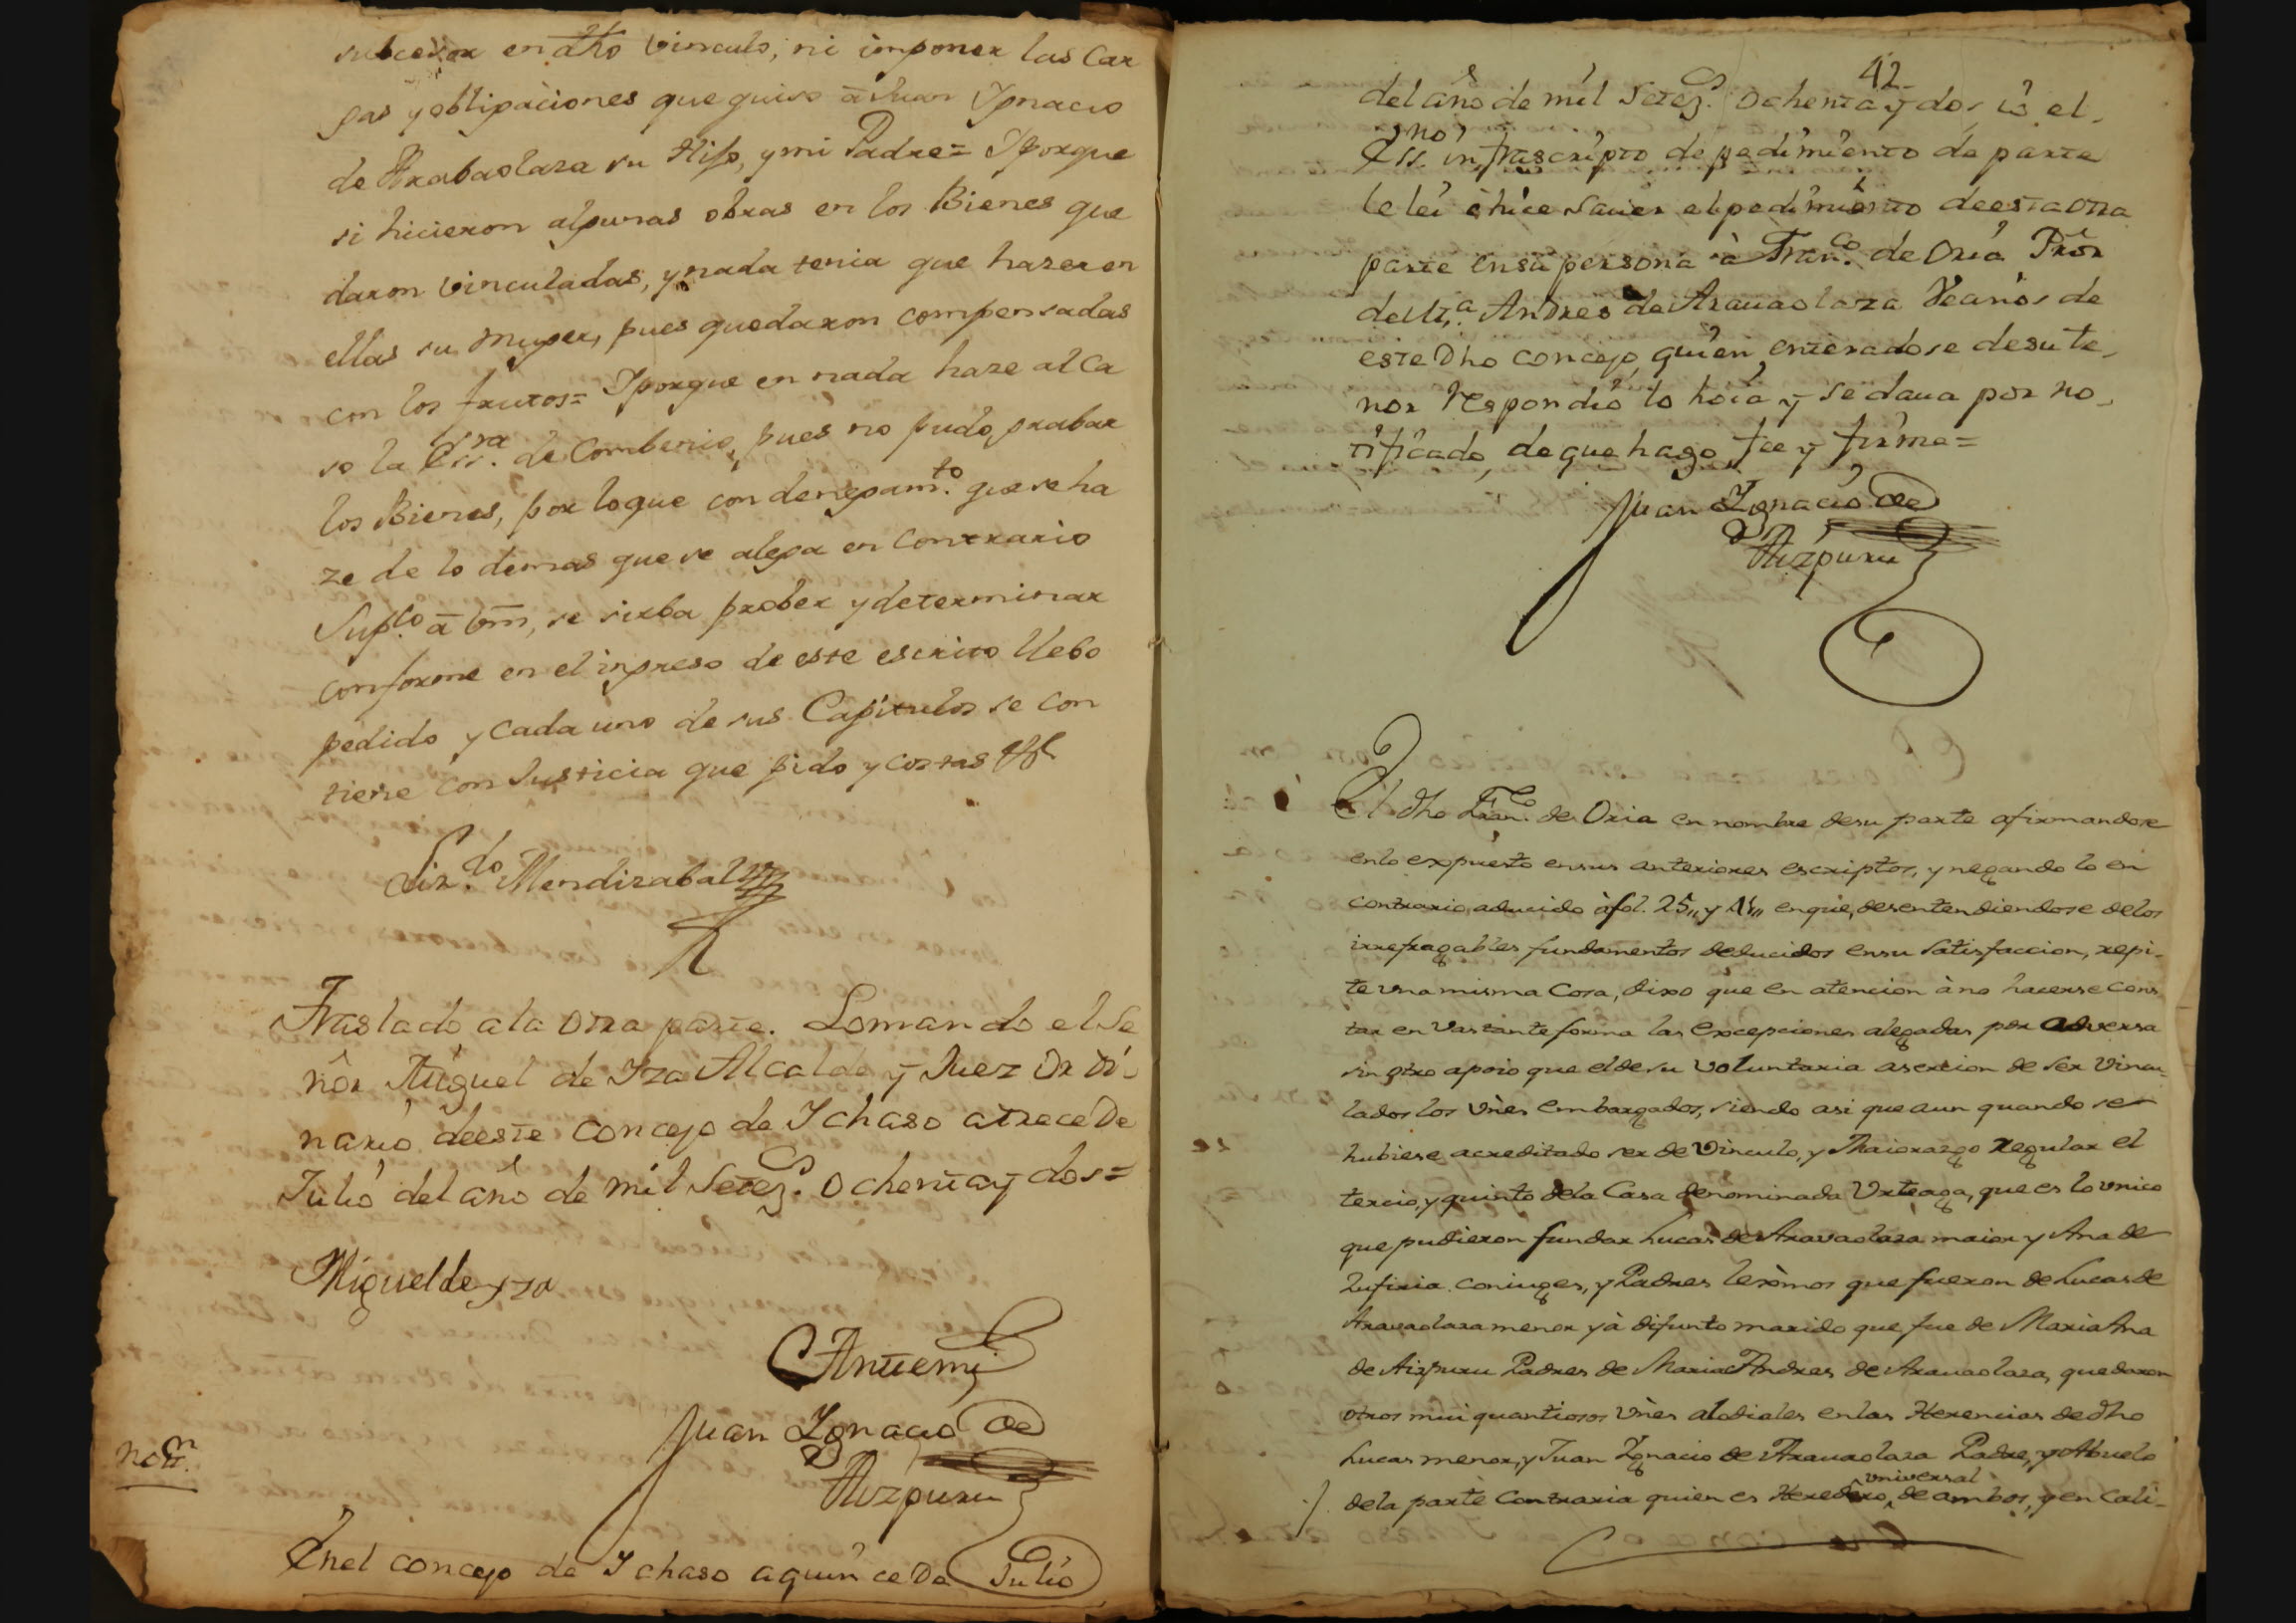 subceder en dho vinculo, ni imponer las Car
gas y obligaciones que quiso a Juan Ignacio
de Arabaolaza su Hijo, y mi Padre= Yporque
si hicieron algunas obras en los Bienes que
daron vinculadas, y nada tenia que hazer en
ellas su muger, pues quedaron compensadas
con los frutos= Yporque en nada haze al ca
so la Essra. de Combenio, pues no pudo grabar
los Bienes, por lo que con denegamto. que se ha
ze de lo demas que se alega en Contrario
Supco. a Vm, se sirba prober y determinar
conforme en el ingreso de este escrito llebo
pedido y cada uno de sus Capitulos se con
tiene con Justicia que pido y costas
Liz.do Mendizabal
Traslado a la otra parte. Lo mando el Se
ñor Miguel de Yza Alcalde y Juez Ordi-
nario de este concejo de Ichaso a trece de
Julio del año de mil Setez.s ochenta y dos=
Miguel de yza
Antemi
Juan Ignacio de
Aizpuru
Notn.
En el concejo de Ichaso a quince de Julio
42
del año de mil Setez.s ochenta y dos, io el
Essno. infrascripto de pedimiento de parte
le lei è hice saver el pedimiento de esta otra
parte en su persona à Franco. de Oria Pror
de Mra. Andres de Arauaolaza Vecinos de
este Dho concejo, quien enteradose de su te-
nor respondió lo hoia y se daua por no-
tificado, de que hago fee y firme=
Juan Ignacio de
Aizpuru
El dho Franco. de Oria en nombre de su parte afirmandose
en lo expuesto en sus anteriores escriptos, y negando lo en
contrario aducido à fol. 25,, y 41,, en que, desentendiendose de los
irrefragables fundamentos deducidos en su satisfaccion, repi-
te una misma Cosa, dixo que en atencion à no hacerse cons
tar en vastante forma las excepciones alegadas por adversa
sin otro apoio que el de su voluntaria asercion de ser vincu-
lados los vnes embargados, siendo asi que aun quando se
hubiese acreditado ser de vinculo, y Maiorazgo regular el
tercio, y quinto de la Casa denominada Vrteaga, que es lo vnico
que pudieron fundar Lucas de Aravaolaza maior y Ana de
Lufiria coniuges, y Padres lexmos que fueron de Lucas de
Aravaolaza menor yà difunto marido que fue de Maria Ana
de Aizpuru Padres de Maria Andres de Arauaolaza, quedaron
otros mui quantiosos vnes alodiales en las Herencias de dho
Lucas menor, y Juan Ignacio de Arauaolaza Padre, y Abuelo
de la parte Contraria quien es Heredero universal de ambos, y en cali-